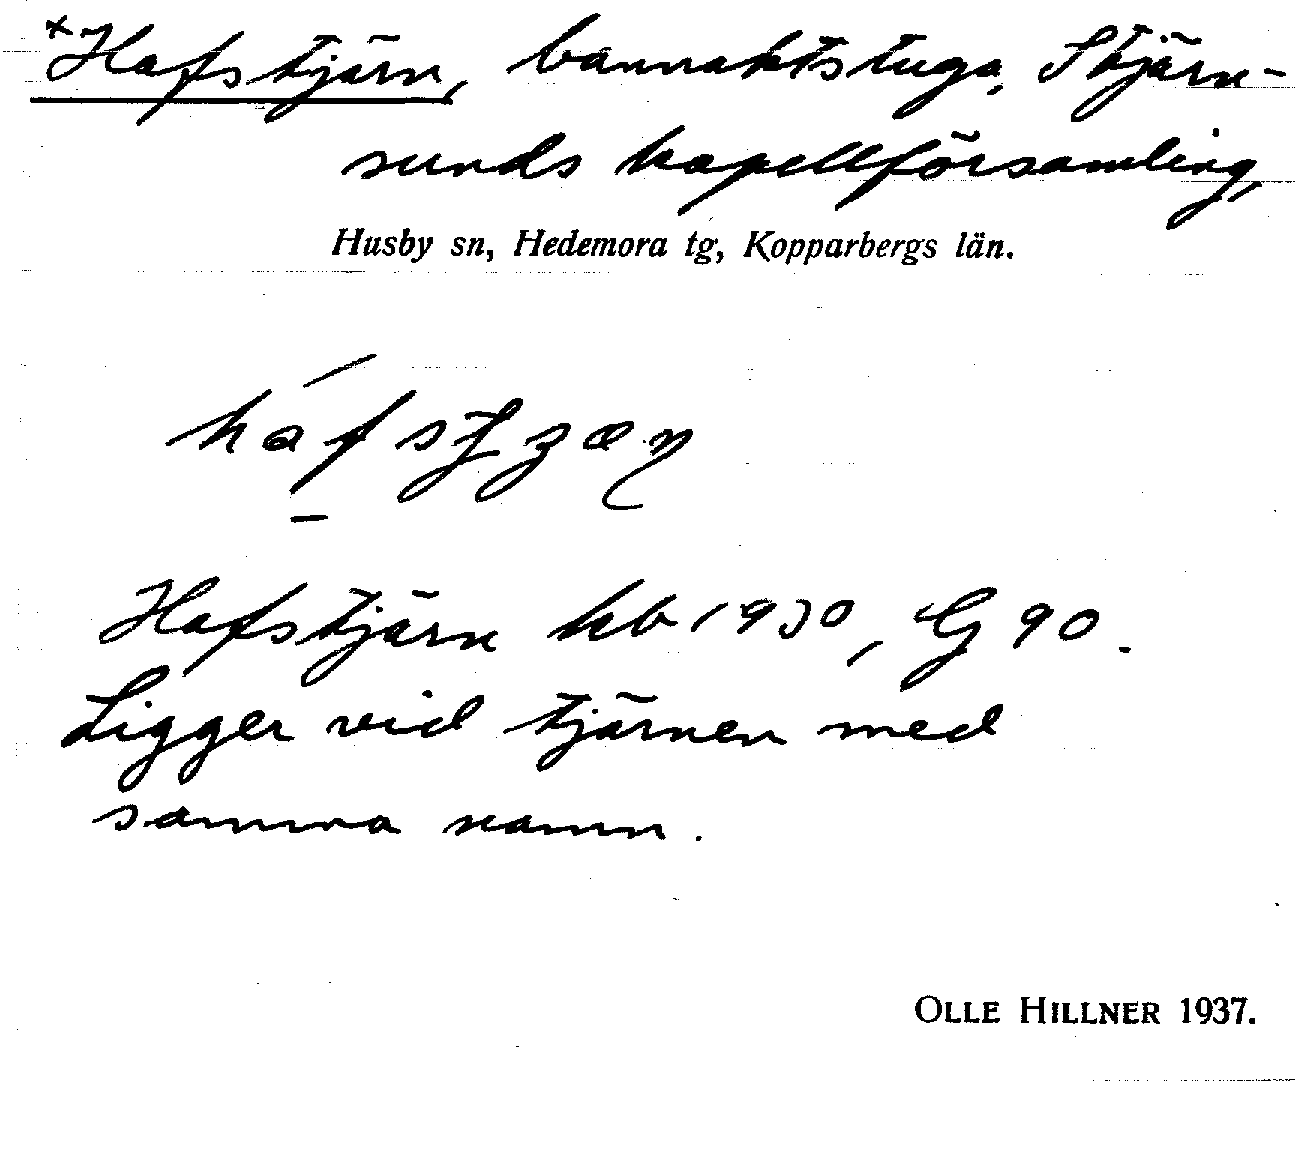 ×Hafstjärn, banvaktstuga, Stjärn-
sunds kapellförsamling,
Husby sn, Hedemora tg, Kopparbergs län.
Hafstjärn kb 1930, G 90.
Ligger vid tjärnen med
samma namn.
OLLE HILLNER 1937.